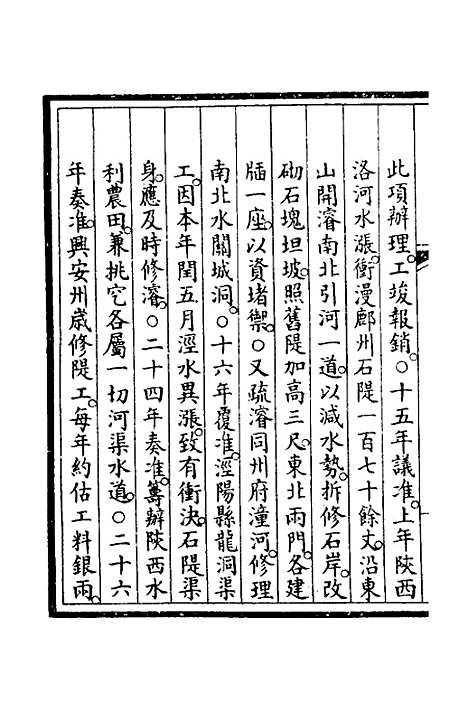 此項辦理。工竣報銷。○十五年議准。上年陝西
洛河水漲。衝漫鄜州石隄一百七十餘丈。沿東
山開濬南北引河一道。以減水勢。拆修石岸。改
砌石塊坦坡。照舊隄加高三尺。東北兩門。各建
牐一座。以資堵禦。○又疏濬同州府潼河。修理
南北水關城洞。○十六年覆准。涇陽縣龍洞渠
工。因本年閏五月涇水異漲。致有衝決。石隄渠
身。應及時修濬。○二十四年奏准。籌辦陝西水
利農田。兼挑穵各屬一切河渠水道。○二十六
年奏准。興安州歲修隄工。每年約估工料銀兩。